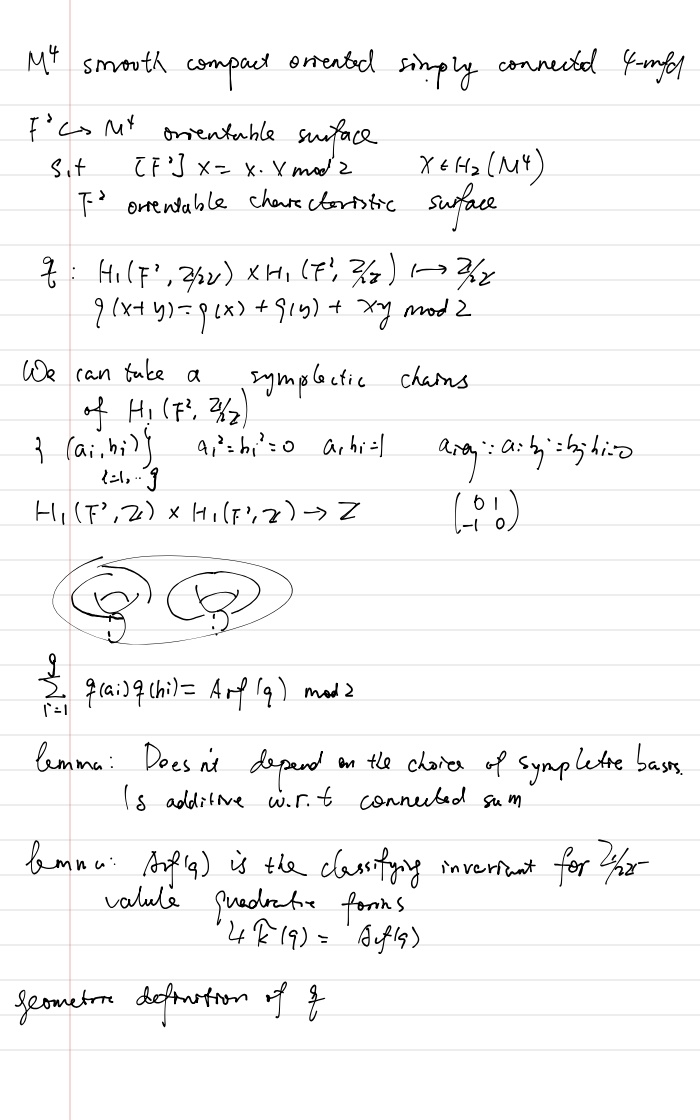 M⁴ smooth compact oriented simply connectd 4-mfd
F² ↪ M⁴ orientable surface
s.t [F²] x = x·x mod 2 x ∈ H₂(M⁴)
F² orientable characteristic surface
q : H₁(F², Z/2Z) × H₁(F², Z/2) ↦ Z/2
q(x+y) = q(x) + q(y) + xy mod 2
We can take a symplectic chains
of H₁(F², Z/2)
{ (ai, bi) } ai² = bi² = 0 ai bi = 1
i=1,..g
H₁(F², Z) × H₁(F², Z) → Z (0 1
-1 0)
g
Σ q(ai) q(bi) = Arf(q) mod 2
i=1
lemma: Does nt depend on the choice of symplectic basis.
Is additive w.r.t connected sum
lemma: Arf(q) is the classifying invariant for Z/2Z-
quadratic forms
4 (q) = Arf(q)
geometric definition of q